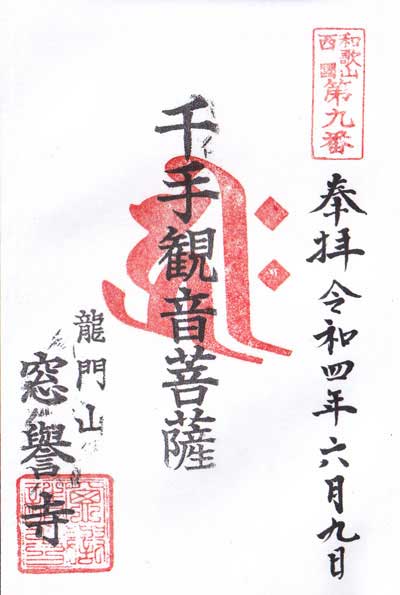 和歌山
西國
第九番
奉拝 令和四年六月九日
千手観音菩薩
龍門山
窓譽寺